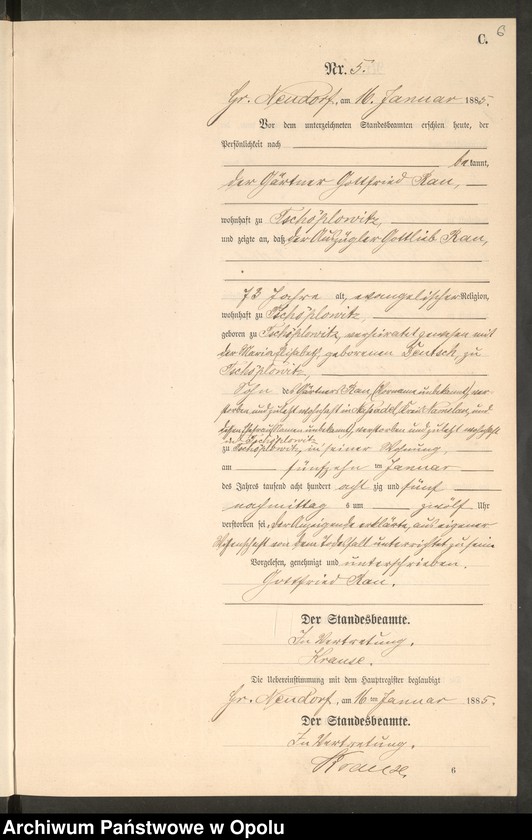 C. 6
Nr. 5.
Gr. Neudorf, am 16. Januar 1885.
Vor dem unterzeichneten Standesbeamten erschien heute, der
Persönlichkeit nach
bekannt,
der Gärtner Gottfried Kau,
wohnhaft zu Tschöplowitz,
und zeigte an, daß der Auszügler Gottlieb Kau,
73 Jahre alt, evangelischer Religion,
wohnhaft zu Tschöplowitz,
geboren zu Tschöplowitz, verheiratet gewesen mit
der Maria Elisabeth, geborenen Deutsch, zu
Tschöplowitz,
Sohn des Gärtners Kau, (Vorname unbekannt), ver-
storben und zuletzt wohnhaft in Kreis Namslau, und
dessen Ehefrau, Namen unbekannt, verstorben und zuletzt wohnhaft
in Tschöplowitz
zu Tschöplowitz, in seiner Wohnung,
am fünfzehn ten Januar
des Jahres tausend acht hundert acht zig und fünf
nachmittag s um zwölf Uhr
verstorben sei, der Anzeigende erklärte, aus eigener
Wissenschaft von dem Todesfall unterrichtet zu sein.
Vorgelesen, genehmigt und unterschrieben.
Gottfried Kau.
Der Standesbeamte.
In Vertretung.
Krause.
Die Uebereinstimmung mit dem Hauptregister beglaubigt
Gr. Neudorf, am 16 ten Januar 1885.
Der Standesbeamte.
In Vertretung.
Krause.
6
Archiwum Państwowe w Opolu